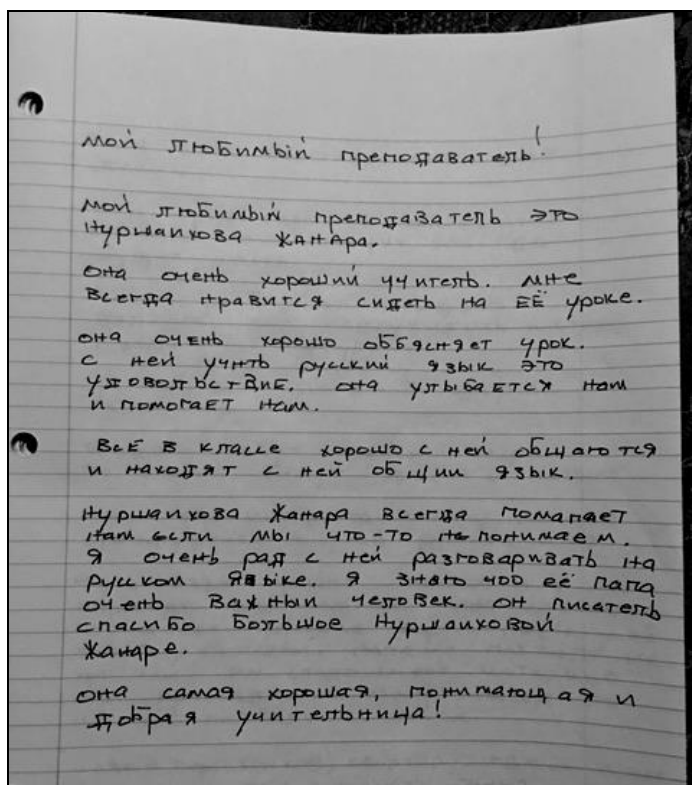 мой любимый преподаватель!
мой любимый преподаватель это
Нуршаихова ЖАНАра.
она очень хороший учитель. мне
Всегда нравится сидеть на ЕЁ уроке.
она очень хорошо обьясняет урок.
с ней учить русский язык это
удовольствие. она улыбается нам
и помогает нам.
Всё в классе хорошо с ней общаются
и находят с ней общии язык.
Нуршаихова Жанара всегда помагает
нам если мы что-то не понимаем.
я очень рад с ней разговаривать на
русском языке. я знаю что её папа
очень важныи человек. он писатель
спасибо большое Нуршаиховой
Жанаре.
она самая хорошая, понимающая и
добрая учительница!